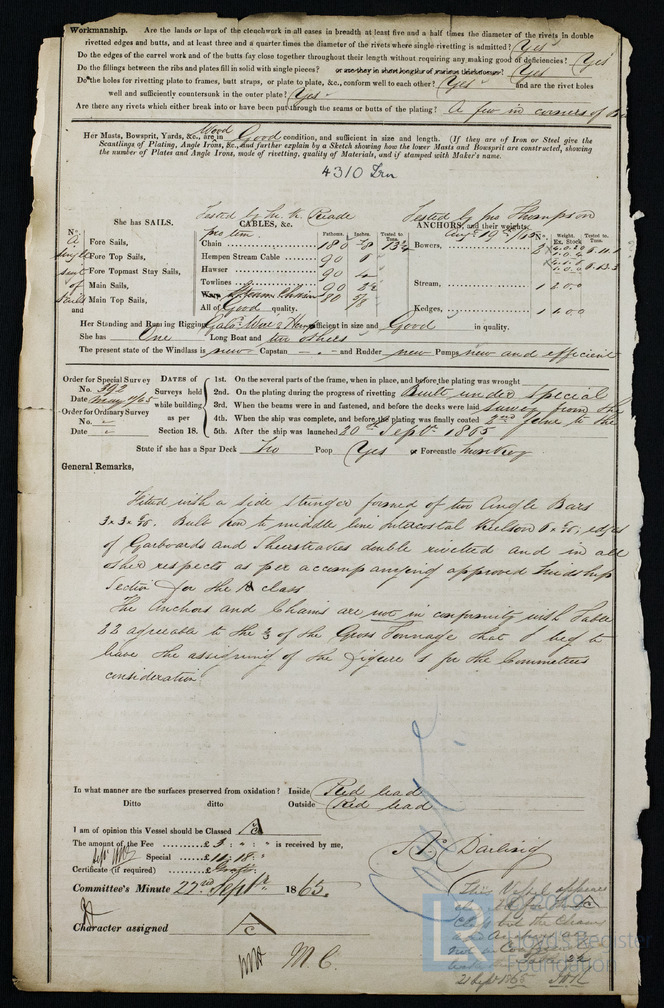 Workmanship. Are the lands or laps of the clenchwork in all cases in breadth at least five and a half times the diameter of the rivets in double
rivetted edges and butts, and at least three and a quarter times the diameter of the rivets where single rivetting is admitted? Yes
Do the edges of the carvel work and of the butts fay close together throughout their length without requiring any making good of deficiencies? Yes
Do the fillings between the ribs and plates fill in solid with single pieces? or are they in short lengths of various thicknesses? Yes
Do the holes for rivetting plate to frames, butt straps, or plate to plate, &c., conform well to each other? Yes and are the rivet holes
well and sufficiently countersunk in the outer plate? Yes
Are there any rivets which either break into or have been put through the seams or butts of the plating? A few in corners of
Her Masts, Bowsprit, Yards, &c., are in Wood Good condition, and sufficient in size and length. (If they are of Iron or Steel give the
Scantlings of Plating, Angle Irons, &c., and further explain by a Sketch showing how the lower Masts and Bowsprit are constructed, showing
the number of Plates and Angle Irons, mode of rivetting, quality of Materials, and if stamped with Maker's name.
4310 Irn
She has SAILS. CABLES, &c. ANCHORS, and their weights.
Tested by Reade Tested by Thompson
pro tem.
No. Fathoms. Inches. Tested to Tons. No. Weight. Ex. Stock Tested to Tons.
A Fore Sails, Chain 180 Bowers,
Fore Top Sails, Hempen Stream Cable 90
Fore Topmast Stay Sails, Hawser 90
of Main Sails, Towlines 90 Stream,
Main Top Sails, Warp Stream Chain
and All of Good quality. Kedges,
Her Standing and Running Rigging Wire & Hemp sufficient in size and Good in quality.
She has One Long Boat and two others
The present state of the Windlass is new Capstan - and Rudder new Pumps new and efficient
Order for Special Survey No. 392
Date May 9/65
Order for Ordinary Survey
No.
Date
DATES of Surveys held while building as per Section 18.
1st. On the several parts of the frame, when in place, and before the plating was wrought
2nd. On the plating during the progress of rivetting Built under special
3rd. When the beams were in and fastened, and before the decks were laid survey from the
4th. When the ship was complete, and before the plating was finally coated 2nd June to the
5th. After the ship was launched 20th Septr. 1865
State if she has a Spar Deck No Poop Yes & Forecastle
General Remarks,
Fitted with a side stringer formed of two Angle Bars
3 x 3 x Bulb Iron to middle line Intercostal Keelson edges
of Garboards and Sheerstrakes double rivetted and in all
other respects as per accompanying approved Midship
Section for the A class
The Anchors and Chains are not in conformity with Table
22 agreeable to the of the Gross Tonnage that I beg to
leave the assigning of the Figure 1 for the Committees
consideration
In what manner are the surfaces preserved from oxidation? Inside Red lead
Ditto ditto Outside Red lead
I am of opinion this Vessel should be Classed A
The amount of the Fee £ 3 : " : " is received by me,
Special £
Certificate (if required) £ Gratis
J. Darling
Committee's Minute 22nd Septr. 1865.
Character assigned A
M.C.
This Vessel appears
class but the Chains
and Anchors are
not in
Table 22
21 Sept 1865
LR
©2019
Lloyd's Register
Foundation